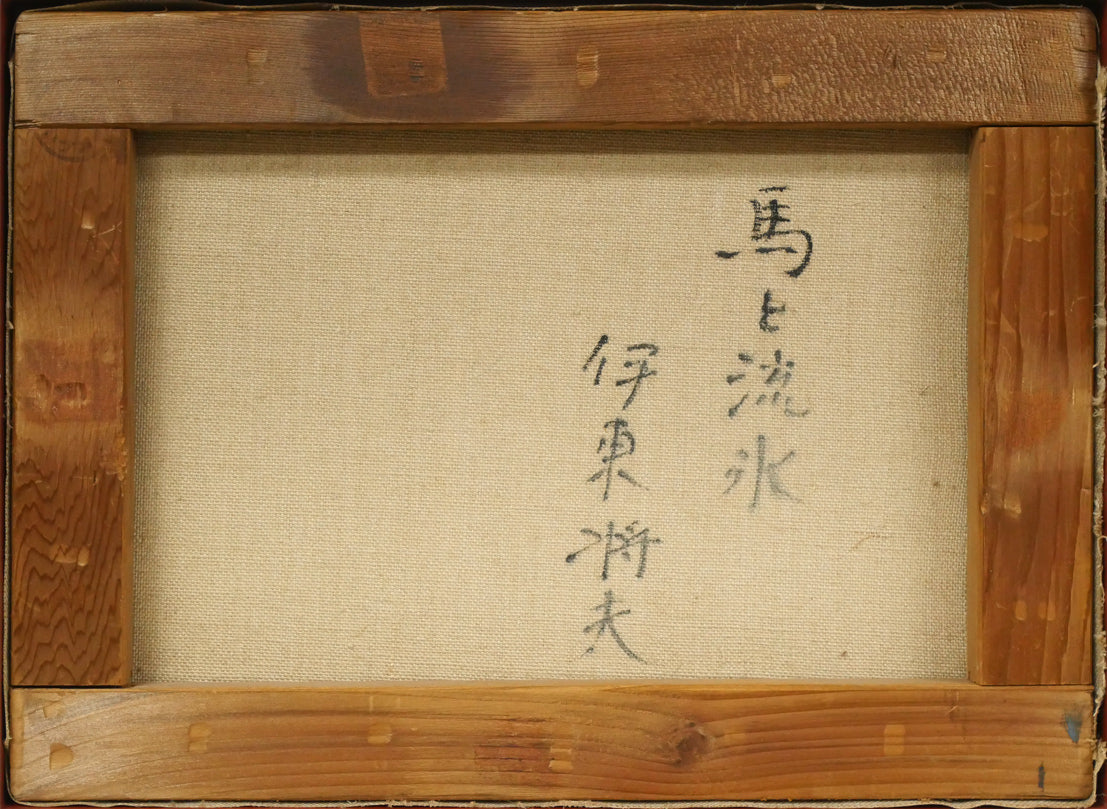 馬と流氷
伊東将夫